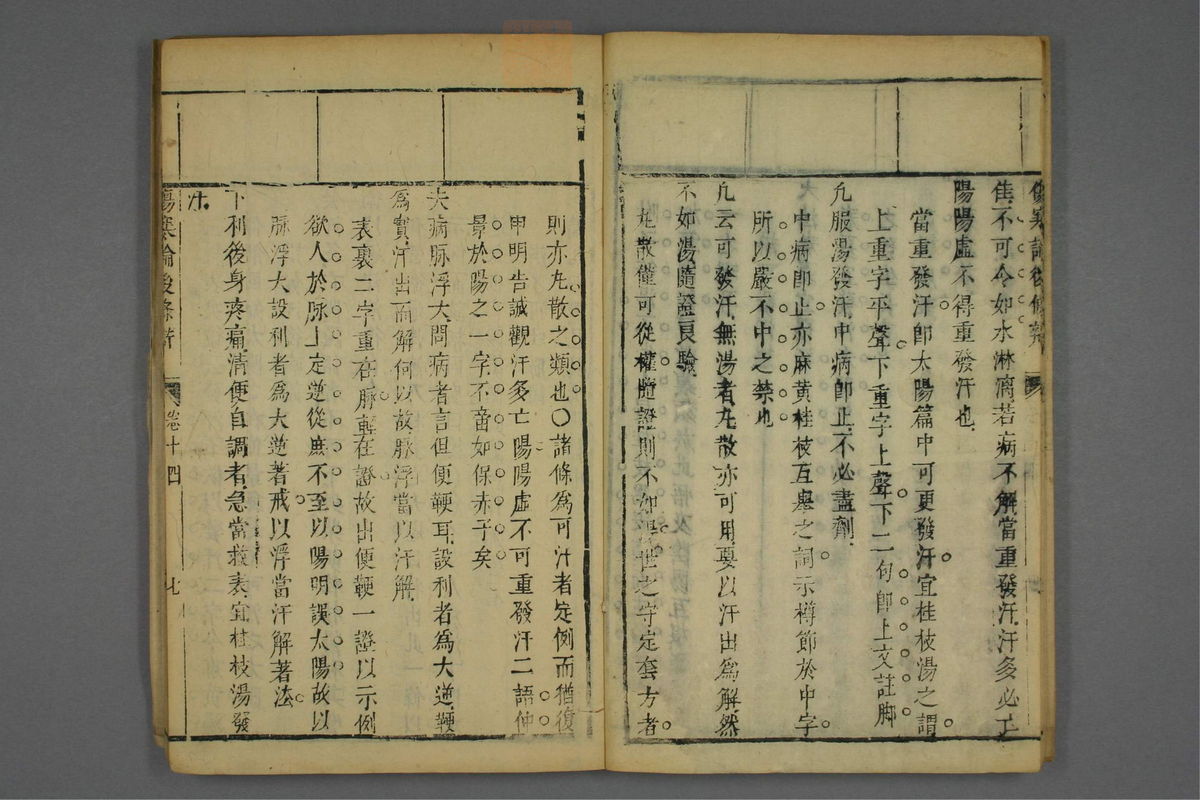 傷寒論後條辨
佳不可令如水淋漓若病不解當重發汗汗多必亡
陽陽虛不得重發汗也
當重發汗卽太陽篇中可更發汗宜桂枝湯之謂
上重字平聲下重字上聲下二句卽上文註脚
凡服湯發汗中病卽止不必盡劑
中病卽止亦麻黃桂枝互舉之詞示樽節於中字
所以嚴不中之禁也
凡云可發汗無湯者丸散亦可用要以汗出爲解然
不如湯隨證良驗
丸散僅可從權隨證則不如湯世之守定套方者
則亦丸散之類也〇諸條爲可汗者定例而猶復
申明告誡觀汗多亡陽陽虛不可重發汗二語仲
景於陽之一字不啻如保赤子矣
夫病脉浮大問病者言但便鞕耳設利者爲大逆鞕
爲實汗出而解何以故脉浮當以汗解
表裏二字重在脉輕在證故出便鞕一證以示例
欲人於脉上定逆從庶不至以陽明誤太陽故以
脉浮大設利者爲大逆著戒以浮當汗解著法
下利後身疼痛清便自調者急當救表宜桂枝湯發
汗
傷寒論後條辨 卷十四 七